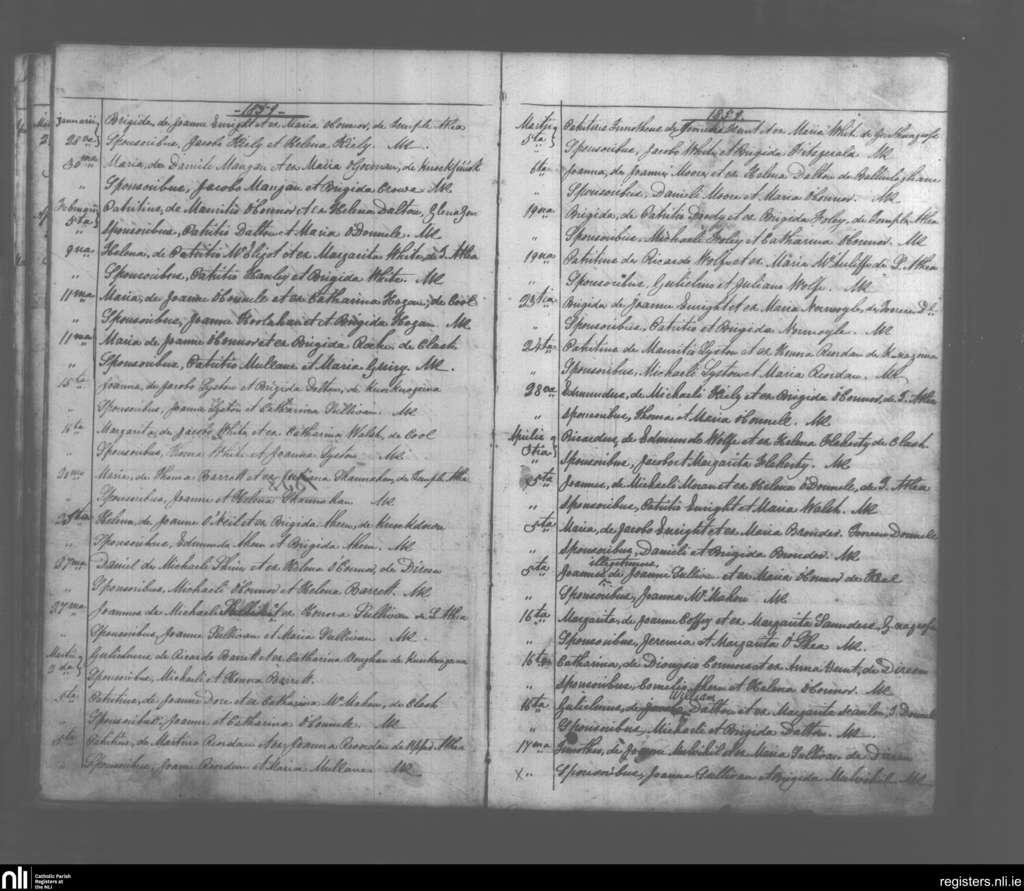 -1859-
Januarii Brigida, de Joanne Enright et ex Maria O'Connor, de Templ. Athea
28va Sponsoribus, Jacobo Kiely et Helena Kiely. MR.
30ma Maria, de Daniele Mangan et ex Maria Gorman, de Knockfinisk
" Sponsoribus, Jacobo Mangan et Brigida MR.
Februarii Patritius, de Mauritio O'Connor et ex Helena Dalton, Glenagon
5ta Sponsoribus, Patritio Dalton et Maria O'Donnele. MR
9na Helena, de Patritio McEligot et ex Margarita White, de T. Athea
" Sponsoribus, Patritio Hanley et Brigida White. MR
11ma Maria, de Joanne O'Connele et ex Catharina Hogan, de Cool
" Sponsoribus, Joanne Hoolahan et Brigida Hogan. MR.
11ma Maria de Joanne O'Connor et ex Brigida Roche, de Clash
" Sponsoribus, Patritio Mullane et Maria MR.
15ta Joanna, de Jacobo Lyston et Brigida Dalton, de
" Sponsoribus, Joanne Lyston et Catharina Sullivan. MR
16ta Margarita, de Jacobo White et ex Catharina Walsh, de Cool
" Sponsoribus, Thoma White et Joanna Lyston MR.
20ma Maria, de Thoma Barrett et ex Juliana Shannahan, de Templ. Athea
" Sponsoribus, Joanne et Helena Shannahan MR.
25ta Helena, de Joanne O'Neil et ex Brigida Ahern, de Knockdown
" Sponsoribus, Edmundo Ahern et Brigida Ahern. MR
27ma Daniel de Michaele Shine et ex Helena O'Connor, de Direen
" Sponsoribus, Michaele O'Connor et Helena Barrett. MR.
27ma Joannes de Michaele et ex Honora Sullivan de L. Athea
" Sponsoribus, Joanne Sullivan et Maria Sullivan MR.
Martii Gulielmus de Ricardo Barrett et ex Catharina Vaughan de
2da Sponsoribus, Michaele et Honora Barrett.
5ta Patritius, de Joanne Dore et ex Catharina McMahon, de Clash
" Sponsoribus, Joanne et Catharina O'Connele. MR
5ta Patritius, de Martino Reordan et ex Joanna Reordan de Upper Athea
" Sponsoribus, Joanne Reordan et Maria Mullane MR
1859.
Martii Patritius Timotheus de Hunt et ex Maria White de
5ta Sponsoribus, Jacobo White et Brigida Fitzgerald. MR
6ta Joanna, de Joanne Moore et ex Helena Dalton de
" Sponsoribus, Daniele Moore et Maria O'Connor. MR
19na Brigida, de Patritio Dooly et ex Brigida Foley, de Templ. Athea
" Sponsoribus, Michaele Foley et Catharina O'Connor. MR
19na Patritius de Ricardo Wolfe et ex Maria McAuliffe de L. Athea
" Sponsoribus, Gulielmo et Juliana Wolfe. MR.
23tia Brigida de Joanne Enright et ex Maria
" Sponsoribus, Patritio et Brigida MR.
24ta Patritius de Mauritio Lyston et ex Honora Reordan de
" Sponsoribus, Michaele Lyston et Maria Reordan. MR
28va Edmundus, de Michaele Kiely et ex Brigida O'Connor, de T. Athea
" Sponsoribus, Thoma et Maria O'Connell. MR
Aprilis Ricardus, de Edmundo Wolfe et ex Helena Flaherty de Clash
3tia Sponsoribus, Jacobo et Margarita Flaherty. MR
5ta Joannes, de Michaele Moran et ex Helena O'Donnele, de T. Athea
" Sponsoribus, Patritio Enright et Maria Walsh. MR
5ta Maria, de Jacobo Enright et ex Maria Brouder.
" Sponsoribus, Daniele et Brigida Brouder. MR
illegitimus,
5ta Joannes de Joanne Sullivan et ex Maria O'Connor de
" Sponsoribus, Joanna McMahon MR
16ta Margarita, de Joanne Coffey et ex Margarita Saunders,
" Sponsoribus, Jeremia et Margarita O'Shea MR.
16ta Catharina, de Dionysio Connors et ex Anna Hunt, de Direen
" Sponsoribus, Cornelio Ahern et Helena O'Connor. MR
William
16ta Gulielmus, de Dalton et ex Margarita Scanlon,
" Sponsoribus, Michaele et Brigida Dalton. MR.
17ma Timotheus, de Joanne Mulvihil et ex Maria Sullivan de Direen
X " Sponsoribus, Joanna Sullivan et Brigida Mulvihil. MR.
nli
Catholic Parish
Registers at
the NLI
registers.nli.ie